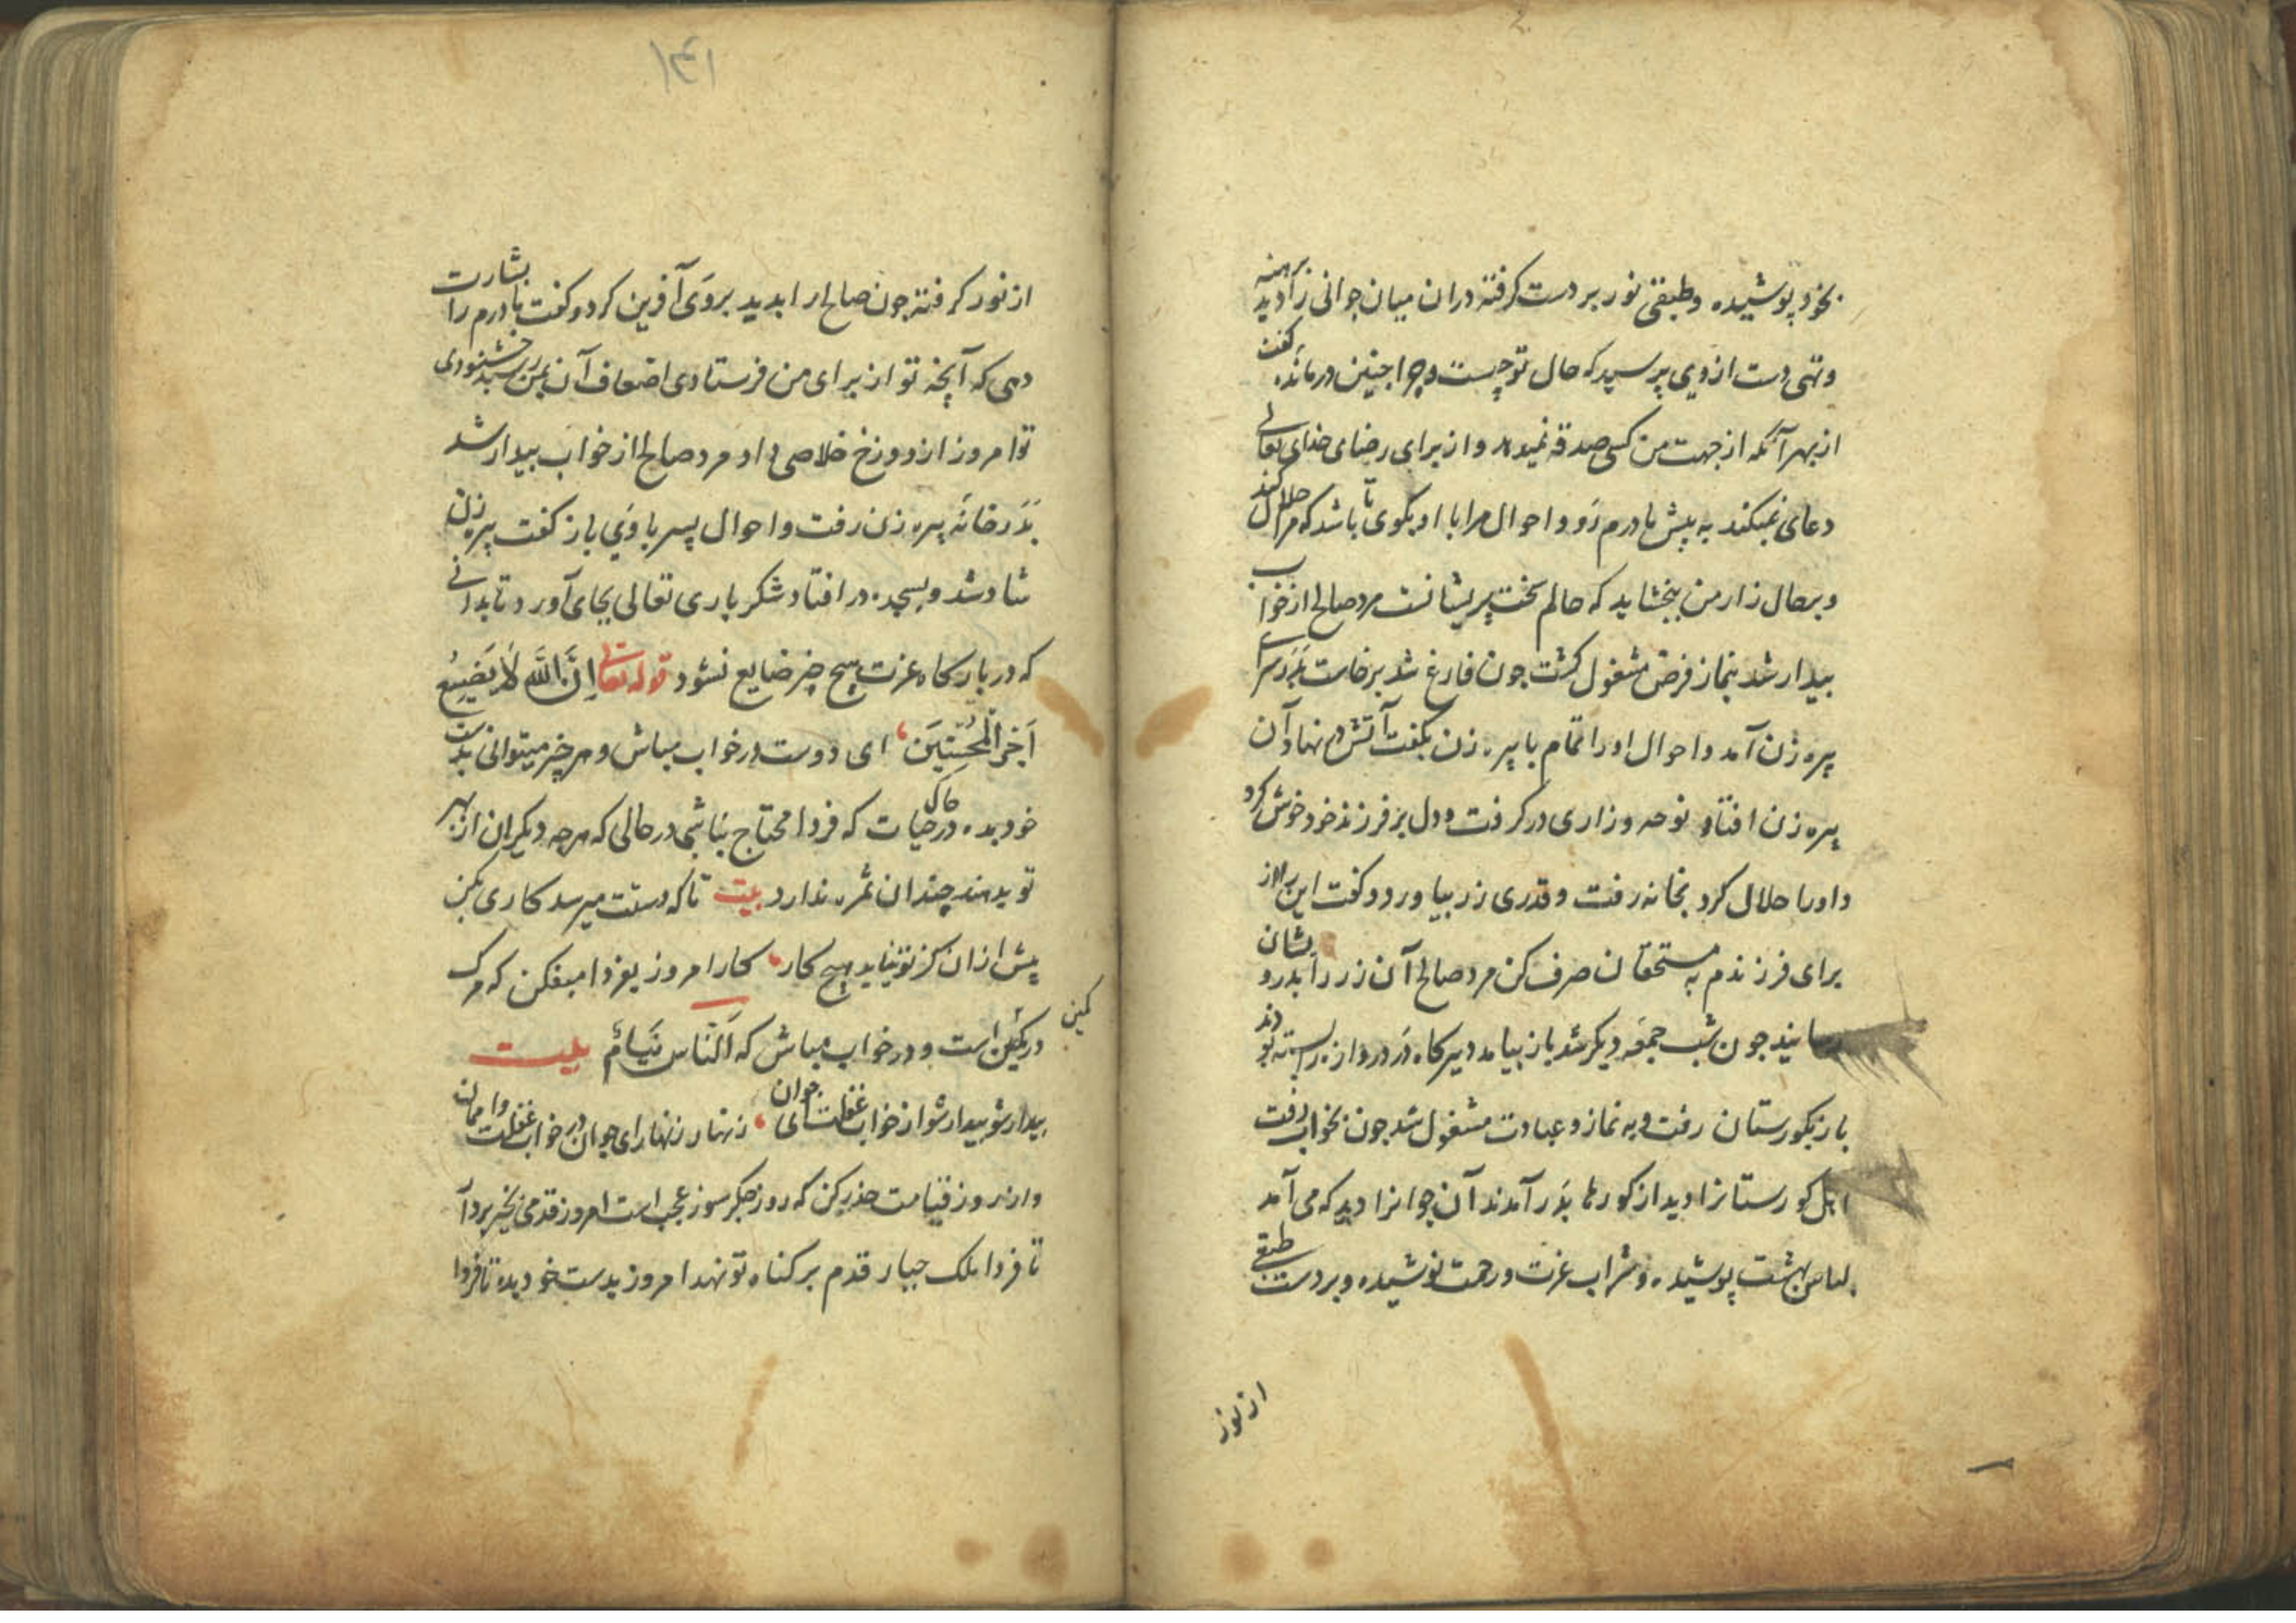 بخود پوشیده و طبقی نور بر دست گرفته دران میان جوانی را دید برهنه
و تهی دست از وی پرسید که حال تو چیست و چرا چنین درمانده گفت
از بهر آنکه از جهت من کسی صدقه نمیدهد و از برای رضای خدای تعالی
دعای نمیکند به پیش مادرم رو و احوال مرا با او بگوی تا باشد که مرا حلال کند
و بر حال زار من ببخشاید که حالم سخت پریشانست مرد صالح از خواب
بیدار شد بنماز فرض مشغول کشت جون فارغ شد برخاست بدر سرای
پیره زن آمد و احوال او را تمام با پیره زن بکفت آتش در نهاد آن
پیره زن افتاد و نوحه و زاری در کرفت و دل بر فرزند خود خوش کرد
و او را حلال کرد بخانه رفت و قدری زر بیاورد و کفت این را از
برای فرزندم به مستحقان صرف کن مرد صالح آن زر را بدرویشان
رسانید جون شب جمعه دیکر شد باز بیامد دیرکاه در دروازه را بسته بودند
باز بکورستان رفت و به نماز و عبادت مشغول شد جون بخواب رفت
اهل کورستانرا دید از کورها بدر آمدند آن جوانرا دید که می آمد
لباس بهشت پوشیده و شراب عزت و رحمت نوشیده و بر دست طبقی
از نور
۱۴۱
از نور کرفته جون صالح را بدید بر وی آفرین کرد و کفت مادرم را بشارت
دهی که آنچه تو از برای من فرستادی اضعاف آن بمن رسید خشنودی
تو امروز از دوزخ خلاصی داد مرد صالح از خواب بیدار شد
بدر خانه پیره زن رفت و احوال پسر با وی باز کفت پیره زن
شاد شد و بسجده در افتاد شکر باری تعالی بجای آورد تا بدانی
که در بارکاه عزت هیچ چیز ضایع نشود قوله تعالی اِنَّ اللّٰهَ لَا یُضِیعُ
اَجْرَ الْمُحْسِنِینَ ای دوست در خواب مباش و هر چیز میتوانی بدست
خود بده در حال حیات که فردا محتاج نباشی در حالی که هرچه دیکران از بهر
تو بدهند چندان ثمره ندارد بیت تا که دستت میرسد کاری بکن
پیش از ان کز تو نیاید هیچ کار کار امروز بفردا میفکن که مرک
در کمین است و در خواب مباش که اَلنَّاسُ نِیَامٌ بیت
کمین
بیدار شو بیدار شو از خواب غفلت ای جوان زنهار زنهار ای جوان در خواب غفلت وا ممان
و از روز قیامت حذر کن که روز جکر سوز عجب است امروز قدمی بخیر بردار
تا فردا ملک جبار قدم بر کناه تو نهد امروز بدست خود بده تا فردا